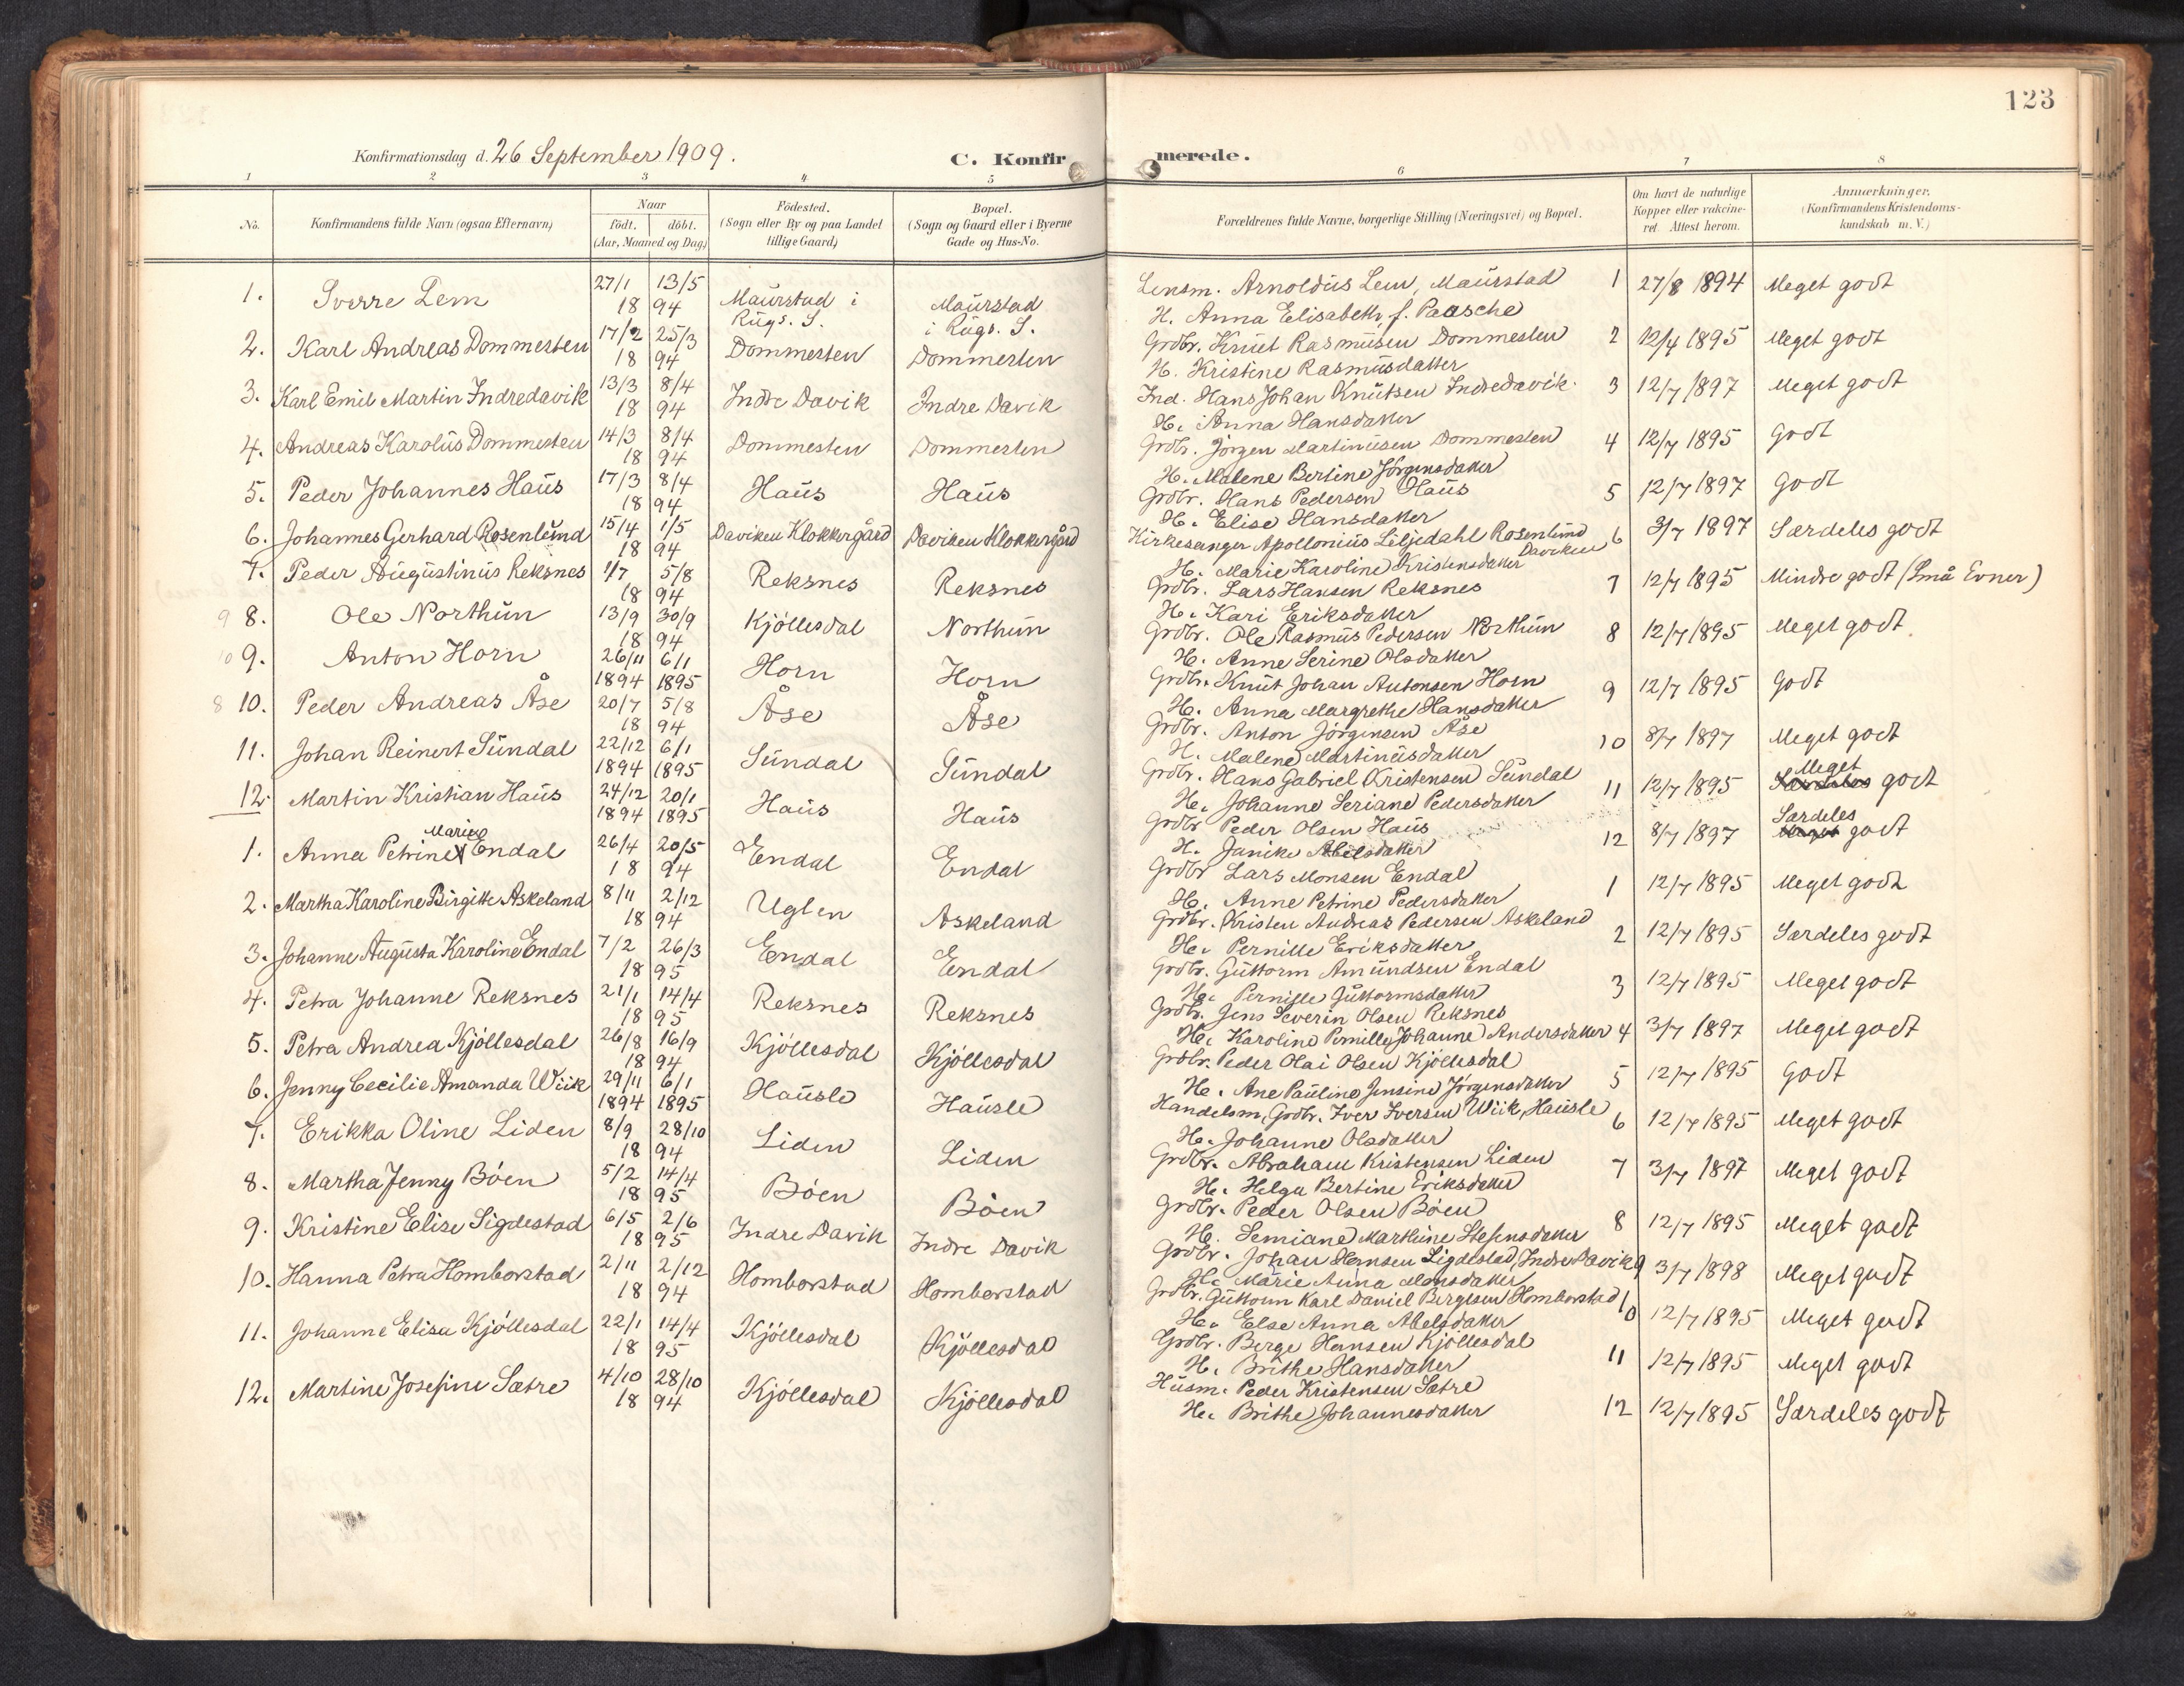 123
Konfirmationsdag d. 26 September 1909.
C. Konfirmerede.
1 2 3 4 5 6 7 8
No.
Konfirmandens fulde Navn (ogsaa Efternavn)
Naar
født. døbt.
(Aar, Maaned og Dag)
Födested.
(Sogn eller By og paa Landet
tillige Gaard)
Bopæl.
(Sogn og Gaard eller i Byerne
Gade og Hus-No.
Forældrenes fulde Navne, borgerlige Stilling (Næringsvei) og Bopæl.
Om havt de naturlige
Kopper eller vakcine-
ret Attest herom.
Anmærkninger.
(Konfirmandens Kristendoms-
kundskab m. V.)
1. Sverre Lem 27/1 1894 13/5 Maurstad i Rugs. S. Maurstad i Rugs. S. Lensm. Arnoldus Lem, Maurstad 1 27/8 1894 Meget godt
H. Anna Elisabeth, f. Paasche
2. Karl Andreas Dommesten 17/2 25/3 1894 Dommesten Dommesten Grdbr. Knut Rasmusen Dommesten 2 12/4 1895 Meget godt
H. Kristine Rasmusdatter
3. Karl Emil Martin Indredavik 13/3 8/4 1894 Indre Davik Indre Davik Ind. Hans Johan Knutsen Indredavik. 3 12/7 1897 Meget godt
H. Anna Hansdatter
4. Andreas Karolus Dommesten 14/3 8/4 1894 Dommesten Dommesten Grdbr. Jørgen Martinusen Dommesten 4 12/7 1895 Godt
H. Malene Bertine Jørgensdatter
5. Peder Johannes Haus 17/3 8/4 1894 Haus Haus Grdbr. Hans Pedersen Haus 5 12/7 1897 Godt
H. Elise Hansdatter
6. Johannes Gerhard Rosenlund 15/4 1/5 1894 Daviken Klokkergård Daviken Klokkergård Kirkesanger Apollonius Liljedahl Rosenlund Daviken 6 3/7 1897 Særdeles godt
H. Marie Karoline Kristensdatter
7. Peder Augustinus Reksnes 1/7 5/8 1894 Reksnes Reksnes Grdbr. Lars Hansen Reksnes 7 12/7 1895 Mindre godt (Små Evner)
H. Kari Eriksdatter
9 8. Ole Northun 13/9 30/9 1894 Kjöllesdal Northun Grdbr. Ole Rasmus Pedersen Northun 8 12/7 1895 Meget godt
H. Anne Serine Olsdatter
10 9. Anton Horn 26/11 1894 6/1 1895 Horn Horn Grdbr. Knut Johan Antonsen Horn 9 12/7 1895 Godt
H. Anna Margrethe Hansdatter
8 10. Peder Andreas Åse 20/7 5/8 1894 Åse Åse Grdbr. Anton Jørgensen Åse 10 8/7 1897 Meget godt
H. Malene Martinusdatter
11. Johan Reinert Sundal 22/12 1894 6/1 1895 Sundal Sundal Grdbr. Hans Gabriel Kristensen Sundal 11 12/7 1895 Særdeles Meget godt
H. Johanne Seriane Pedersdatter
12. Martin Kristian Haus 24/12 1894 20/1 1895 Haus Haus Grdbr Peder Olsen Haus 12 8/7 1897 Meget Særdeles godt
H. Janike Abelsdatter
1. Anna Petrine Marine Endal 26/4 20/5 1894 Endal Endal Grdbr Lars Monsen Endal 1 12/7 1895 Meget godt
H. Anne Petrine Pedersdatter
2. Martha Karoline Birgitte Askeland 8/11 2/12 1894 Uglen Askeland Grdbr. Kristen Andreas Pedersen Askeland 2 12/7 1895 Særdeles godt
H. Pernille Eriksdatter
3. Johanne Augusta Karoline Endal 7/2 26/3 1895 Endal Endal Grdbr. Guttorm Amundsen Endal 3 12/7 1895 Meget godt
H. Pernille Guttormsdatter
4. Petra Johanne Reksnes 21/1 14/4 1895 Reksnes Reksnes Grdbr. Jens Severin Olsen Reksnes 4 3/7 1897 Meget godt
H. Karoline Pernille Johanne Andersdatter
5. Petra Andrea Kjöllesdal 26/8 16/9 1894 Kjöllesdal Kjöllesdal Grdbr. Peder Olai Olsen Kjöllesdal 5 12/7 1895 Godt
H. Ane Pauline Jensine Jørgensdatter
6. Jenny Cecilie Amanda Wiik 29/11 1894 6/1 1895 Hausle Hausle Handelsm. Grdbr. Iver Iversen Wiik, Hausle 6 12/7 1895 Meget godt
H. Johanne Olsdatter
7. Erikka Oline Liden 8/9 28/10 1894 Liden Liden Grdbr. Abraham Kristensen Liden 7 3/7 1897 Meget godt
H. Helga Bertine Eriksdatter
8. Martha Jenny Böen 5/2 14/4 1895 Böen Böen Grdbr. Peder Olsen Böen 8 12/7 1895 Meget godt
H. Semiane Marthine Stefensdatter
9. Kristine Elise Sigdestad 6/5 2/6 1895 Indre Davik Indre Davik Grdbr. Johan Hansen Sigdestad, Indre Davik 9 3/7 1898 Meget godt
H. Marie Anna Monsdatter
10. Hanna Petra Homborstad 2/11 2/12 1894 Homborstad Homborstad Grdbr. Guttorm Karl Daniel Birgesen Homborstad 10 12/7 1895 Meget godt
H. Else Anna Abelsdatter
11. Johanne Elisa Kjöllesdal 22/1 14/4 1895 Kjöllesdal Kjöllesdal Grdbr. Berge Hansen Kjöllesdal 11 12/7 1895 Meget godt
H. Brithe Hansdatter
12. Martine Josefine Sætre 4/10 28/10 1894 Kjöllesdal Kjöllesdal Husm. Peder Kristensen Sætre 12 12/7 1895 Særdeles godt
H. Brithe Johannesdatter